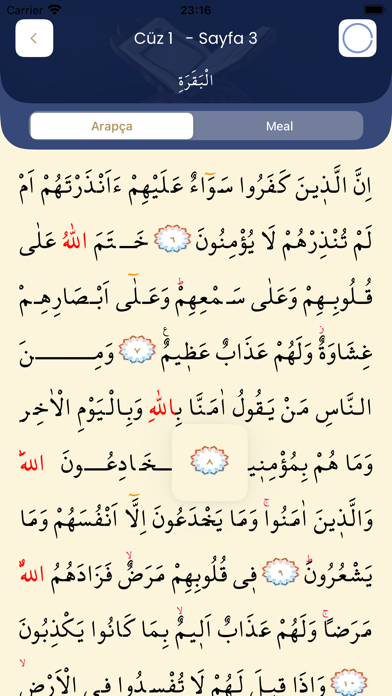 Carrier 23:16
Cüz 1 - Sayfa 3
الْبَقَرَةِ
Arapça Meal
اِنَّ الَّذ۪ينَ كَفَرُوا سَوَٓاءٌ عَلَيْهِمْ ءَاَنْذَرْتَهُمْ اَمْ
لَمْ تُنْذِرْهُمْ لَا يُؤْمِنُونَ ٦ خَــتَمَ اللّٰهُ عَلٰى
قُلُوبِهِمْ وَعَلٰى سَمْعِهِمْۜ وَعَلٰٓى اَبْصَارِهِمْ
غِشَاوَةٌۘ وَلَهُمْ عَذَابٌ عَظ۪يمٌ۟ ٧ وَمِــنَ
النَّاسِ مَنْ يَقُولُ اٰمَنَّا بِاللّٰهِ وَبِالْيَوْمِ الْاٰخِرِ
وَمَا هُمْ بِمُؤْمِن۪ي ٨ ـخَـادِعُــونَ اللّٰهَ
وَالَّذ۪ينَ اٰمَنُواۚ وَمَا يَخْدَعُونَ اِلَّٓا اَنْفُسَهُمْ وَمَا
يَشْعُرُونَۜ ٩ ف۪ي قُلُوبِهِمْ مَرَضٌۙ فَزَادَهُمُ اللّٰهُ
مَرَضاًۚ وَلَهُمْ عَذَابٌ اَل۪يمٌۙ بِمَا كَانُوا يَكْذِبُونَ
١٠ وَاِذَا ق۪يلَ لَهُمْ لَا تُفْسِدُوا فِي الْاَرْضِۙ